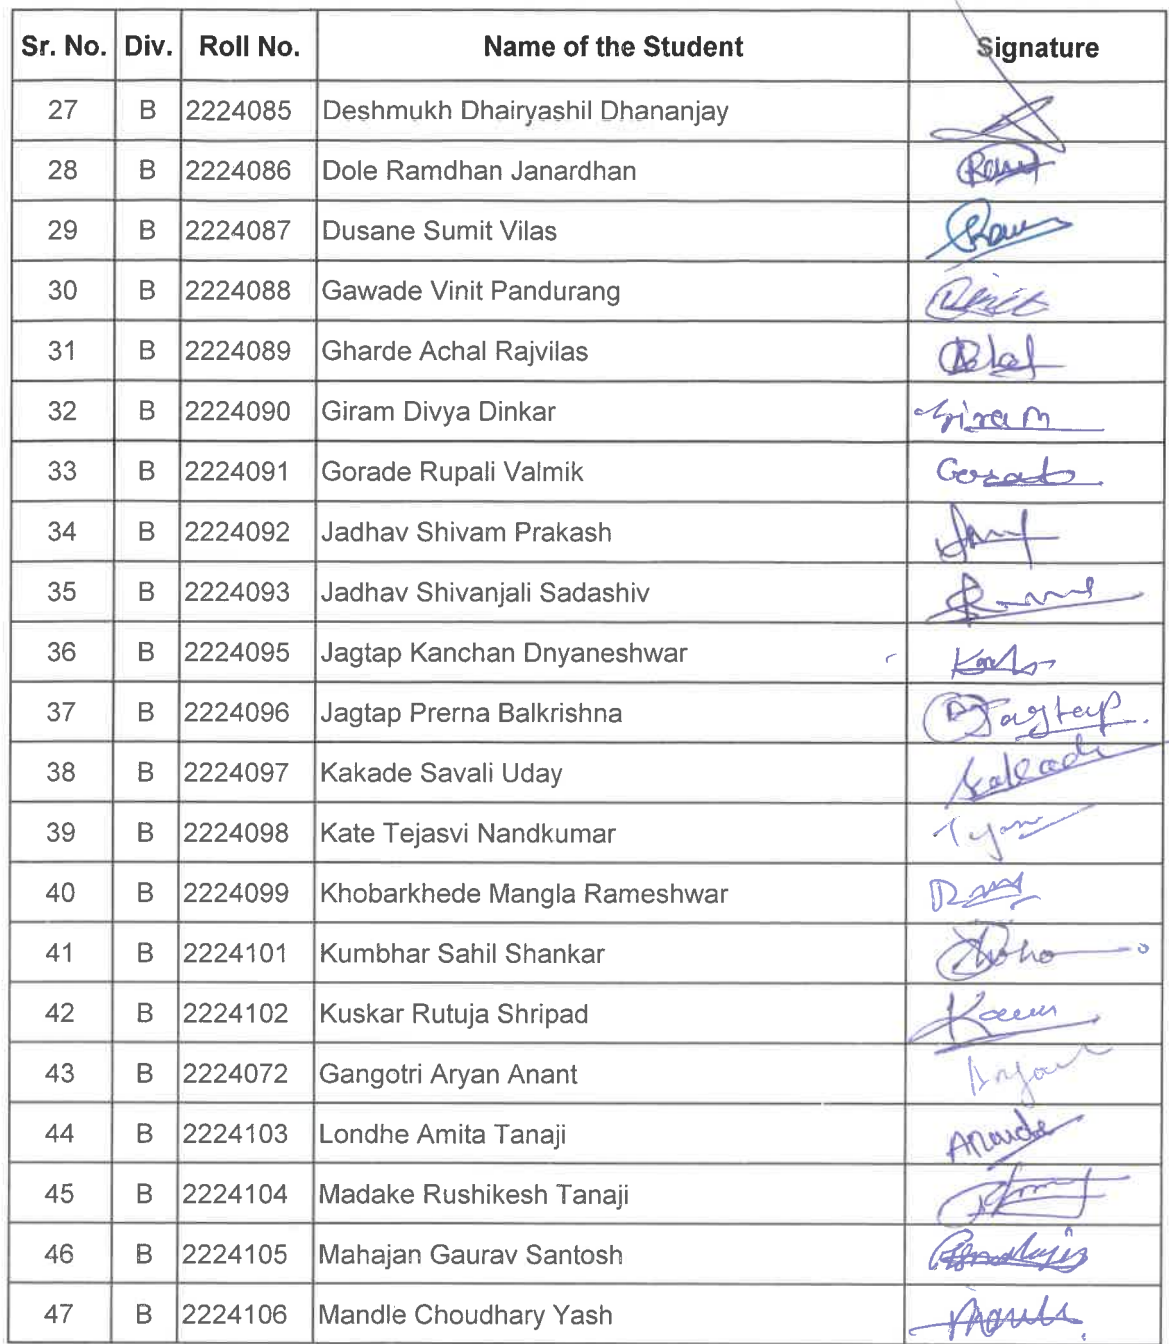 Sr. No. Div. Roll No. Name of the Student Signature
27 B 2224085 Deshmukh Dhairyashil Dhananjay
28 B 2224086 Dole Ramdhan Janardhan
29 B 2224087 Dusane Sumit Vilas
30 B 2224088 Gawade Vinit Pandurang
31 B 2224089 Gharde Achal Rajvilas
32 B 2224090 Giram Divya Dinkar Giram
33 B 2224091 Gorade Rupali Valmik
34 B 2224092 Jadhav Shivam Prakash
35 B 2224093 Jadhav Shivanjali Sadashiv
36 B 2224095 Jagtap Kanchan Dnyaneshwar
37 B 2224096 Jagtap Prerna Balkrishna Jagtap
38 B 2224097 Kakade Savali Uday
39 B 2224098 Kate Tejasvi Nandkumar
40 B 2224099 Khobarkhede Mangla Rameshwar
41 B 2224101 Kumbhar Sahil Shankar
42 B 2224102 Kuskar Rutuja Shripad
43 B 2224072 Gangotri Aryan Anant
44 B 2224103 Londhe Amita Tanaji
45 B 2224104 Madake Rushikesh Tanaji
46 B 2224105 Mahajan Gaurav Santosh
47 B 2224106 Mandle Choudhary Yash